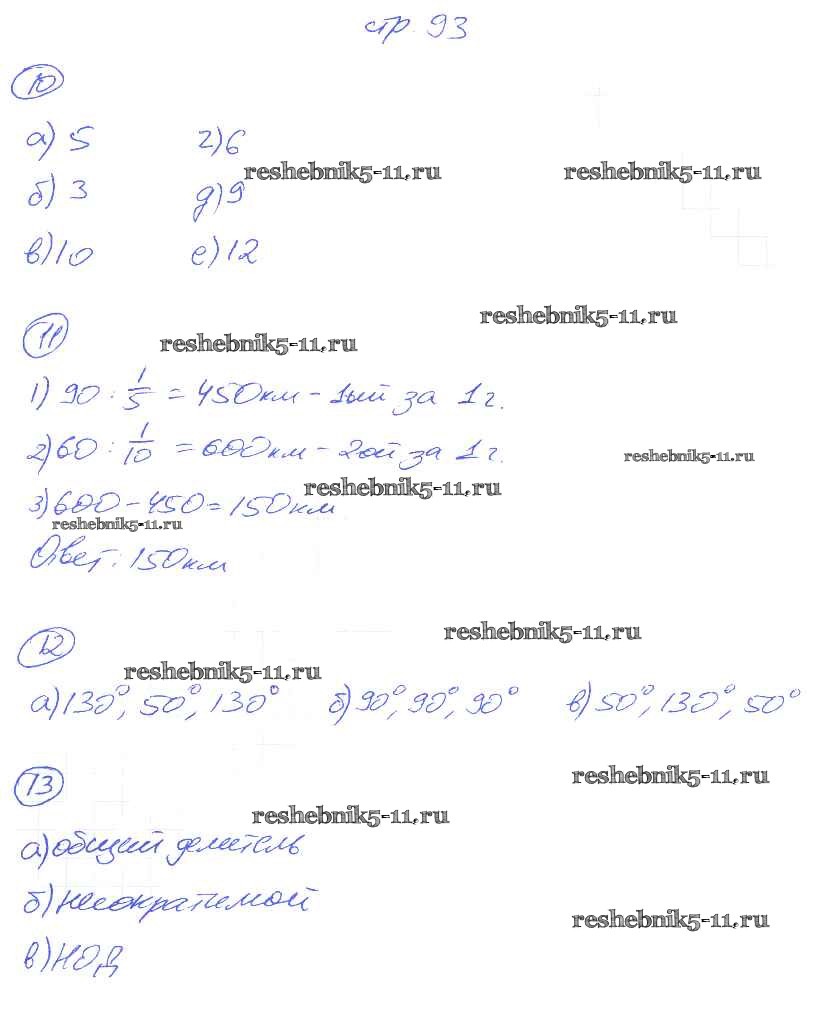 стр. 93
10
а) 5 г) 6
reshebnik5-11.ru reshebnik5-11.ru
б) 3 д) 9
в) 10 е) 12
reshebnik5-11.ru
11
reshebnik5-11.ru
1) 90 : 1/5 = 450 км - 1ый за 1 г.
2) 60 : 1/10 = 600 км - 2ой за 1 г.
reshebnik5-11.ru
reshebnik5-11.ru
3) 600 - 450 = 150 км
reshebnik5-11.ru
Ответ: 150 км
reshebnik5-11.ru
12
reshebnik5-11.ru
а) 130°, 50°, 130° б) 90°, 90°, 90° в) 50°, 130°, 50°
reshebnik5-11.ru
13
reshebnik5-11.ru
а) общий делитель
б) несократимой
reshebnik5-11.ru
в) НОД